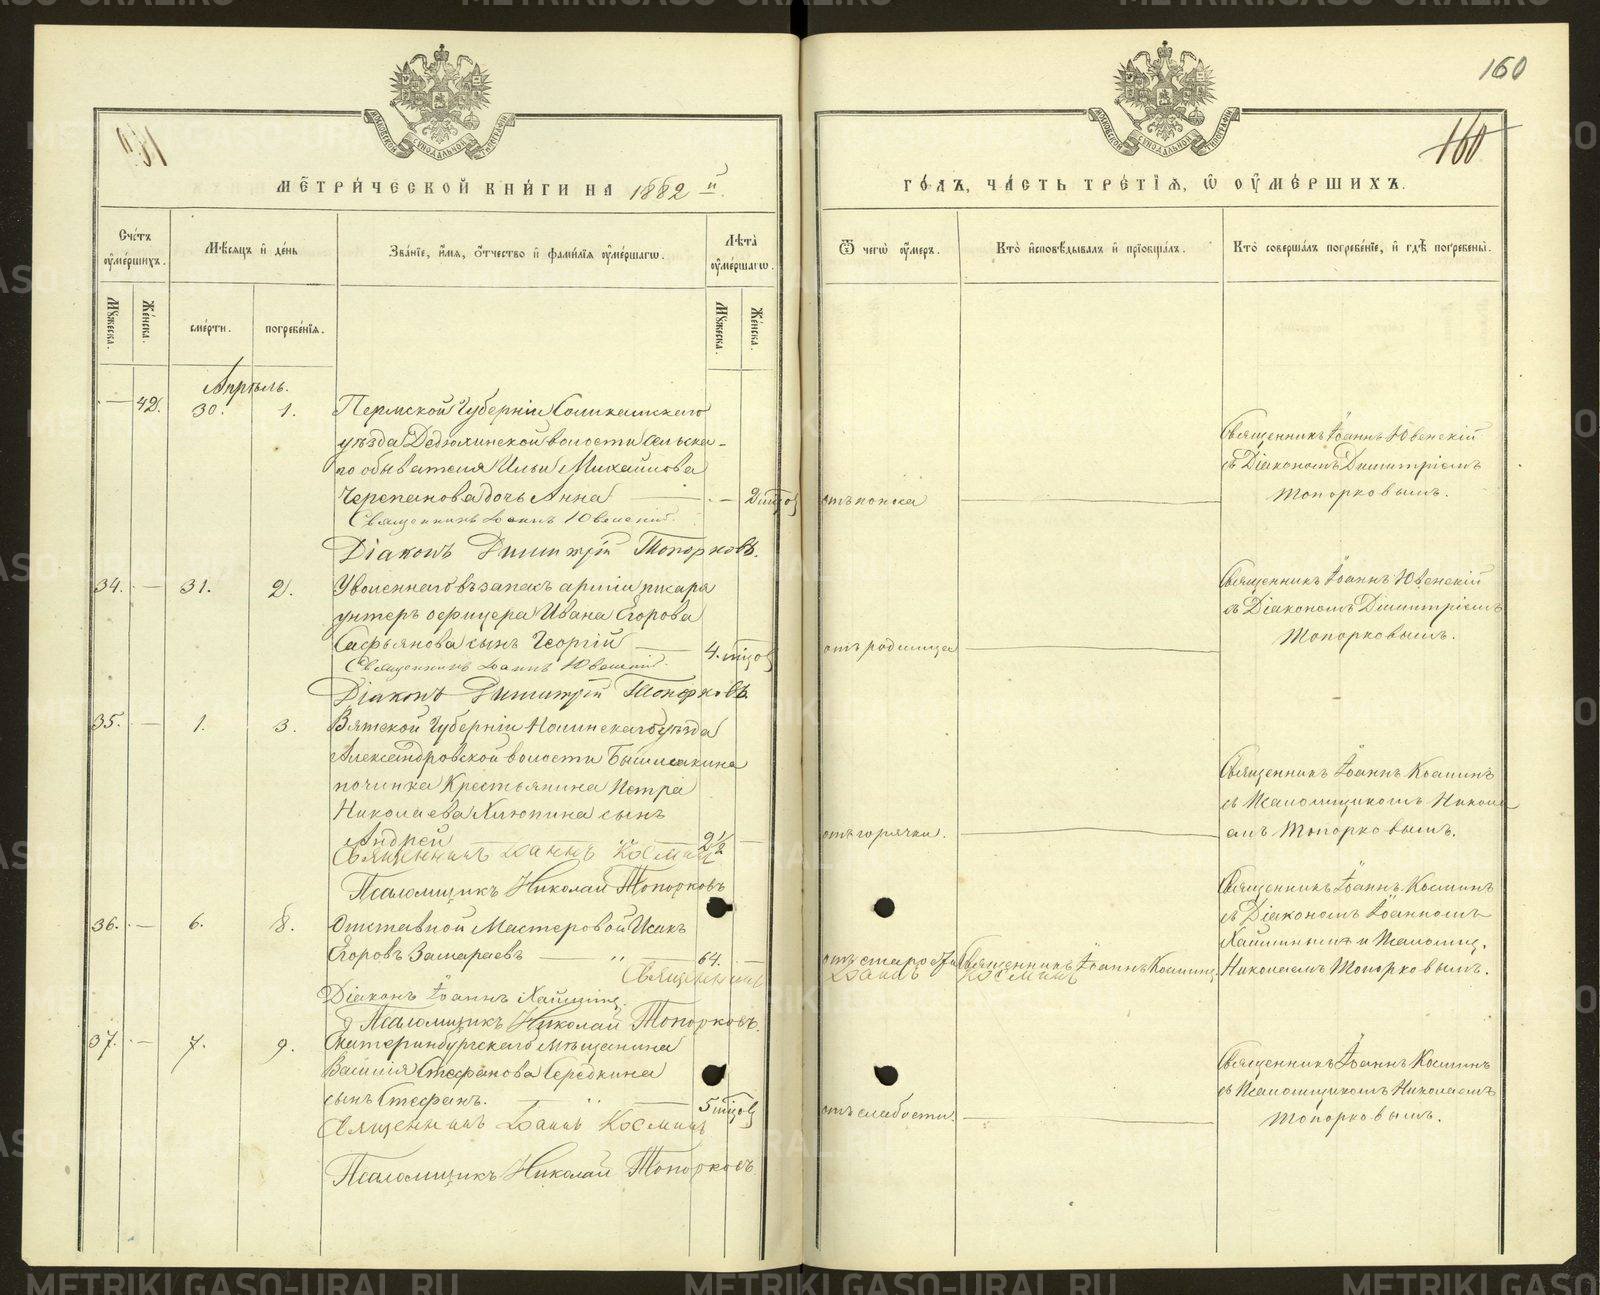 160
160
МЕТРИЧЕСКОЙ КНИГИ НА 1882 й
ГОДЪ, ЧАСТЬ ТРЕТІЯ, Ѿ ОУМЕРШИХЪ.
Счетъ оумершихъ.
Мѣсяцъ и день
Званіе, имя, отчество и фамилія оумершагѡ.
Лѣта оумершагѡ.
Ѿ чегѡ оумеръ.
Кто исповѣдывалъ и пріобщалъ.
Кто совершалъ погребеніе, и гдѣ погребены.
Мужеска.
Женска.
смерти.
погребенія.
Мужеска.
Женска.
Апрѣль.
— 42. 30. 1. Пермской Губерніи Соликамскаго
уѣзда Дедюхинской волости сельска-
го обывателя Ильи Михайлова
Черепанова дочь Анна — — 2 мцов
отъ поноса
Священникъ Іоаннъ Ювенскій
съ Діакономъ Димитріемъ
Топорковымъ.
Священникъ Іоаннъ Ювенскій.
Діаконъ Димитрій Топорковъ.
34. — 31. 2. Уволеннаго въ запасъ арміи писаря
унтеръ офицера Ивана Егорова
Сафьянова сынъ Георгій — 4. мцов
отъ родимца
Священникъ Іоаннъ Ювенскій
съ Діакономъ Димитріемъ
Топорковымъ.
Священникъ Іоаннъ Ювенскій.
Діаконъ Димитрій Топорковъ.
35. — 1. 3. Вятской Губерніи Нолинскаго уѣзда
Александровской волости
починка Крестьянина Петра
Николаева Хлюпина сынъ
Андрей " 2 1/2 —
отъ горячки.
Священникъ Іоаннъ Косминъ
съ Псаломщикомъ Никола
емъ Топорковымъ.
Священникъ Іоаннъ Косминъ
Псаломщикъ Николай Топорковъ
36. — 6. 8. Отставной Мастеровой Исакъ
Егоровъ Замараевъ — " 64. —
отъ старости
Священникъ Іоаннъ Косминъ
Священникъ Іоаннъ Косминъ
съ Діакономъ Іоанномъ
и Псаломщ.
Николаемъ Топорковымъ.
Священникъ
Іоаннъ Косминъ
Діаконъ Іоаннъ
Псаломщикъ Николай Топорковъ.
37. — 7. 9. Екатеринбургскаго Мѣщанина
Василія Стефанова Середкина
сынъ Стефанъ. — " — 5 мцов
отъ слабости.
Священникъ Іоаннъ Косминъ
съ Псаломщикомъ Николаемъ
Топорковымъ.
Священникъ Іоаннъ Косминъ
Псаломщикъ Николай Топорковъ
METRIKI.GASO-URAL.RU